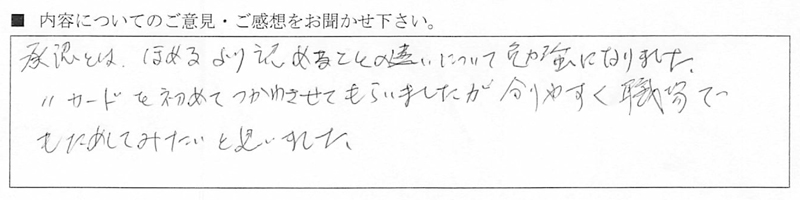 ■ 内容についてのご意見・ご感想をお聞かせ下さい。
承認とは、ほめるより認めることの違いについて勉強になりました。
〃カードを初めてつかわさせてもらいましたが分りやすく職場で
もためしてみたいと思いました。